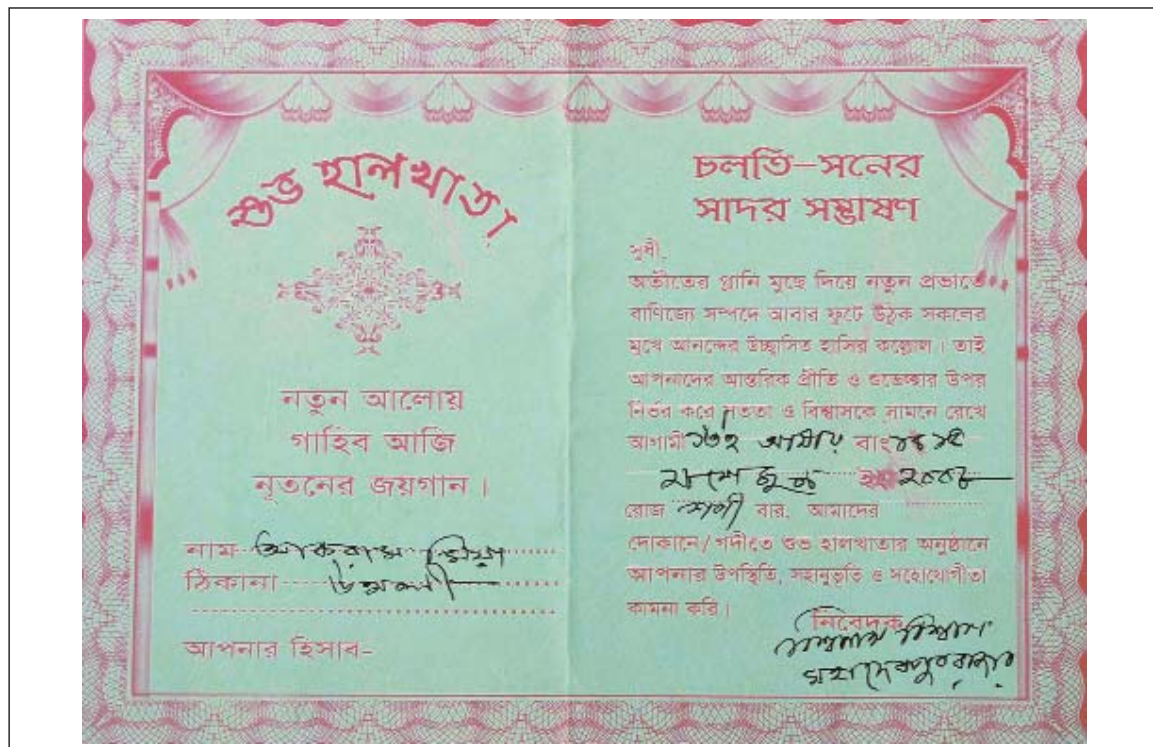 শুভ হালখাতা
নতুন আলোয়
গাহিব আজি
নূতনের জয়গান।
নাম আকরাম মিয়া
ঠিকানা
আপনার হিসাব-
চলতি-সনের
সাদর সম্ভাষণ
সুধী,
অতীতের গ্লানি মুছে দিয়ে নতুন প্রভাতে
বাণিজ্যে সম্পদে আবার ফুটে উঠুক সকলের
মুখে আনন্দের উচ্ছ্বসিত হাসির কল্লোল। তাই
আপনাদের আন্তরিক প্রীতি ও শুভেচ্ছার উপর
নির্ভর করে সততা ও বিশ্বাসকে সামনে রেখে
আগামী ১৪ই আষাঢ় বাং ১৪১৫
২৮শে জুন ইং ২০০৮
রোজ শনি বার, আমাদের
দোকানে/গদীতে শুভ হালখাতার অনুষ্ঠানে
আপনার উপস্থিতি, সহানুভূতি ও সহোযোগীতা
কামনা করি।
নিবেদক
বিশ্বাস
মহাদেবপুর বাজার